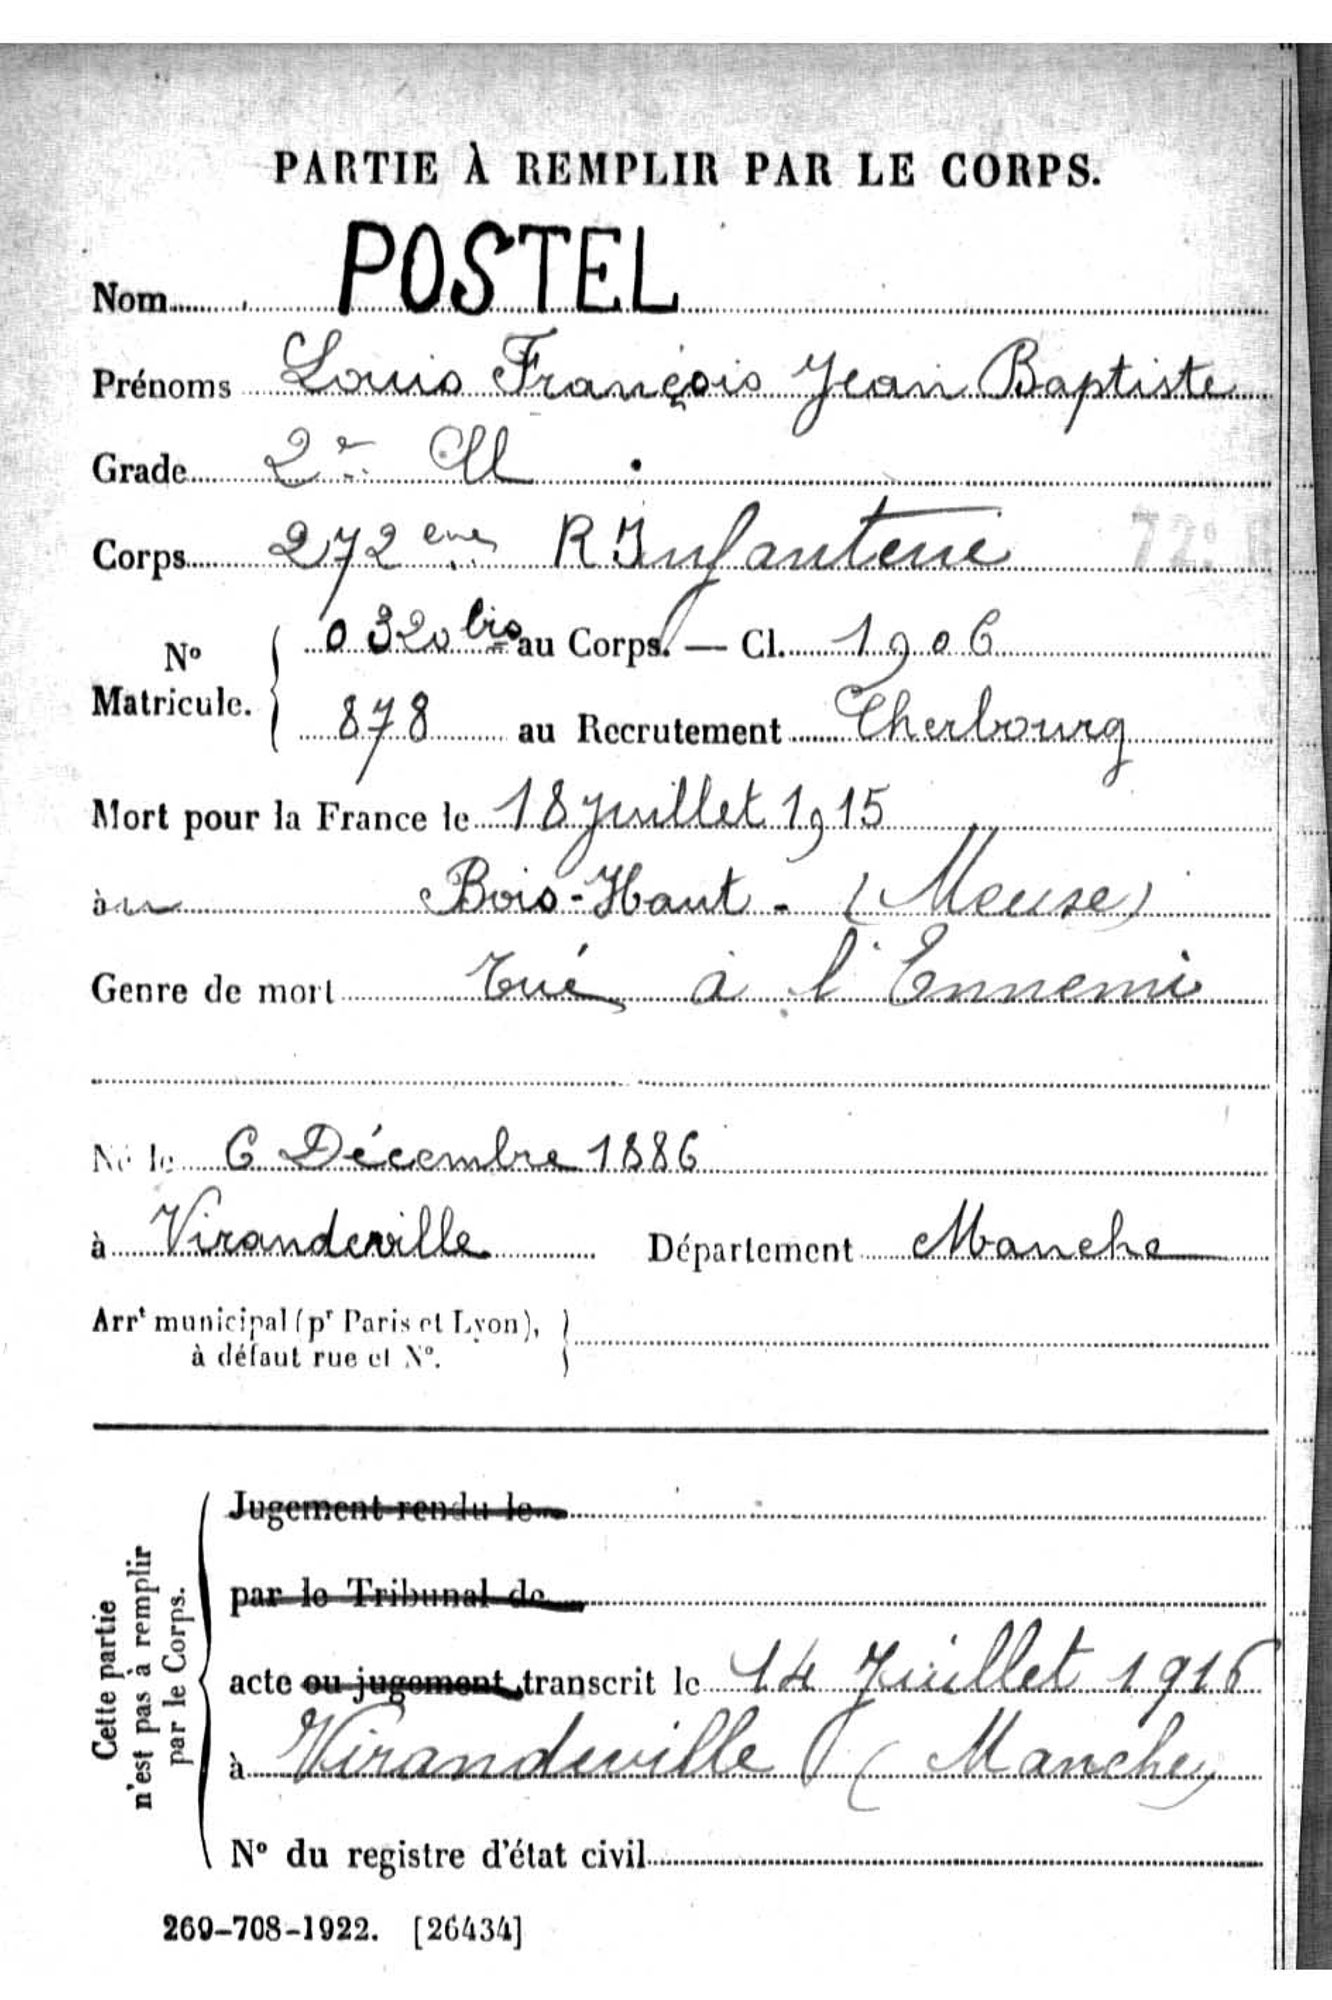 PARTIE À REMPLIR PAR LE CORPS.
Nom POSTEL
Prénoms Louis François Jean Baptiste
Grade 2e Cl
Corps 272eme R Infanterie
No Matricule. 0320 bis au Corps. — Cl. 1906
878 au Recrutement Cherbourg
Mort pour la France le 18 Juillet 1915
à Bois-Haut - (Meuse)
Genre de mort tué à l'Ennemi
Né le 6 Décembre 1886
à Virandeville Département Manche
Arrt municipal (pr Paris et Lyon),
à défaut rue et No.
Cette partie
n'est pas à remplir
par le Corps.
Jugement rendu le
par le Tribunal de
acte ou jugement transcrit le 14 Juillet 1916
à Virandeville (Manche)
No du registre d'état civil
269-708-1922. [26434]